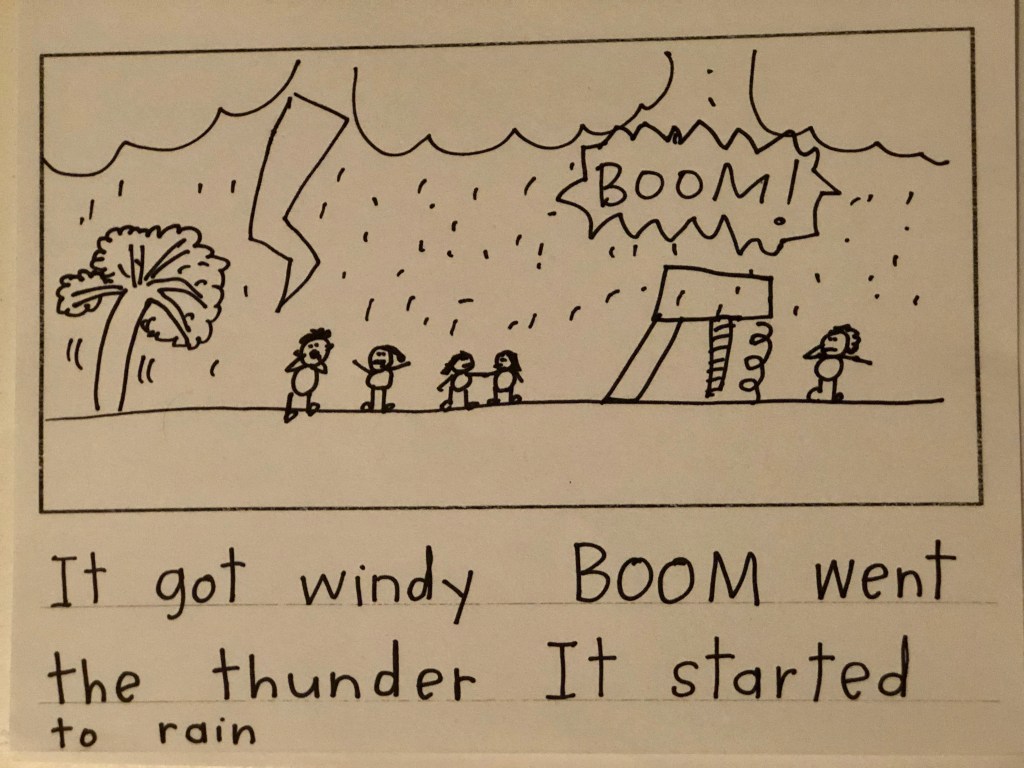 BOOM!
It got windy BOOM went
the thunder It started
to rain